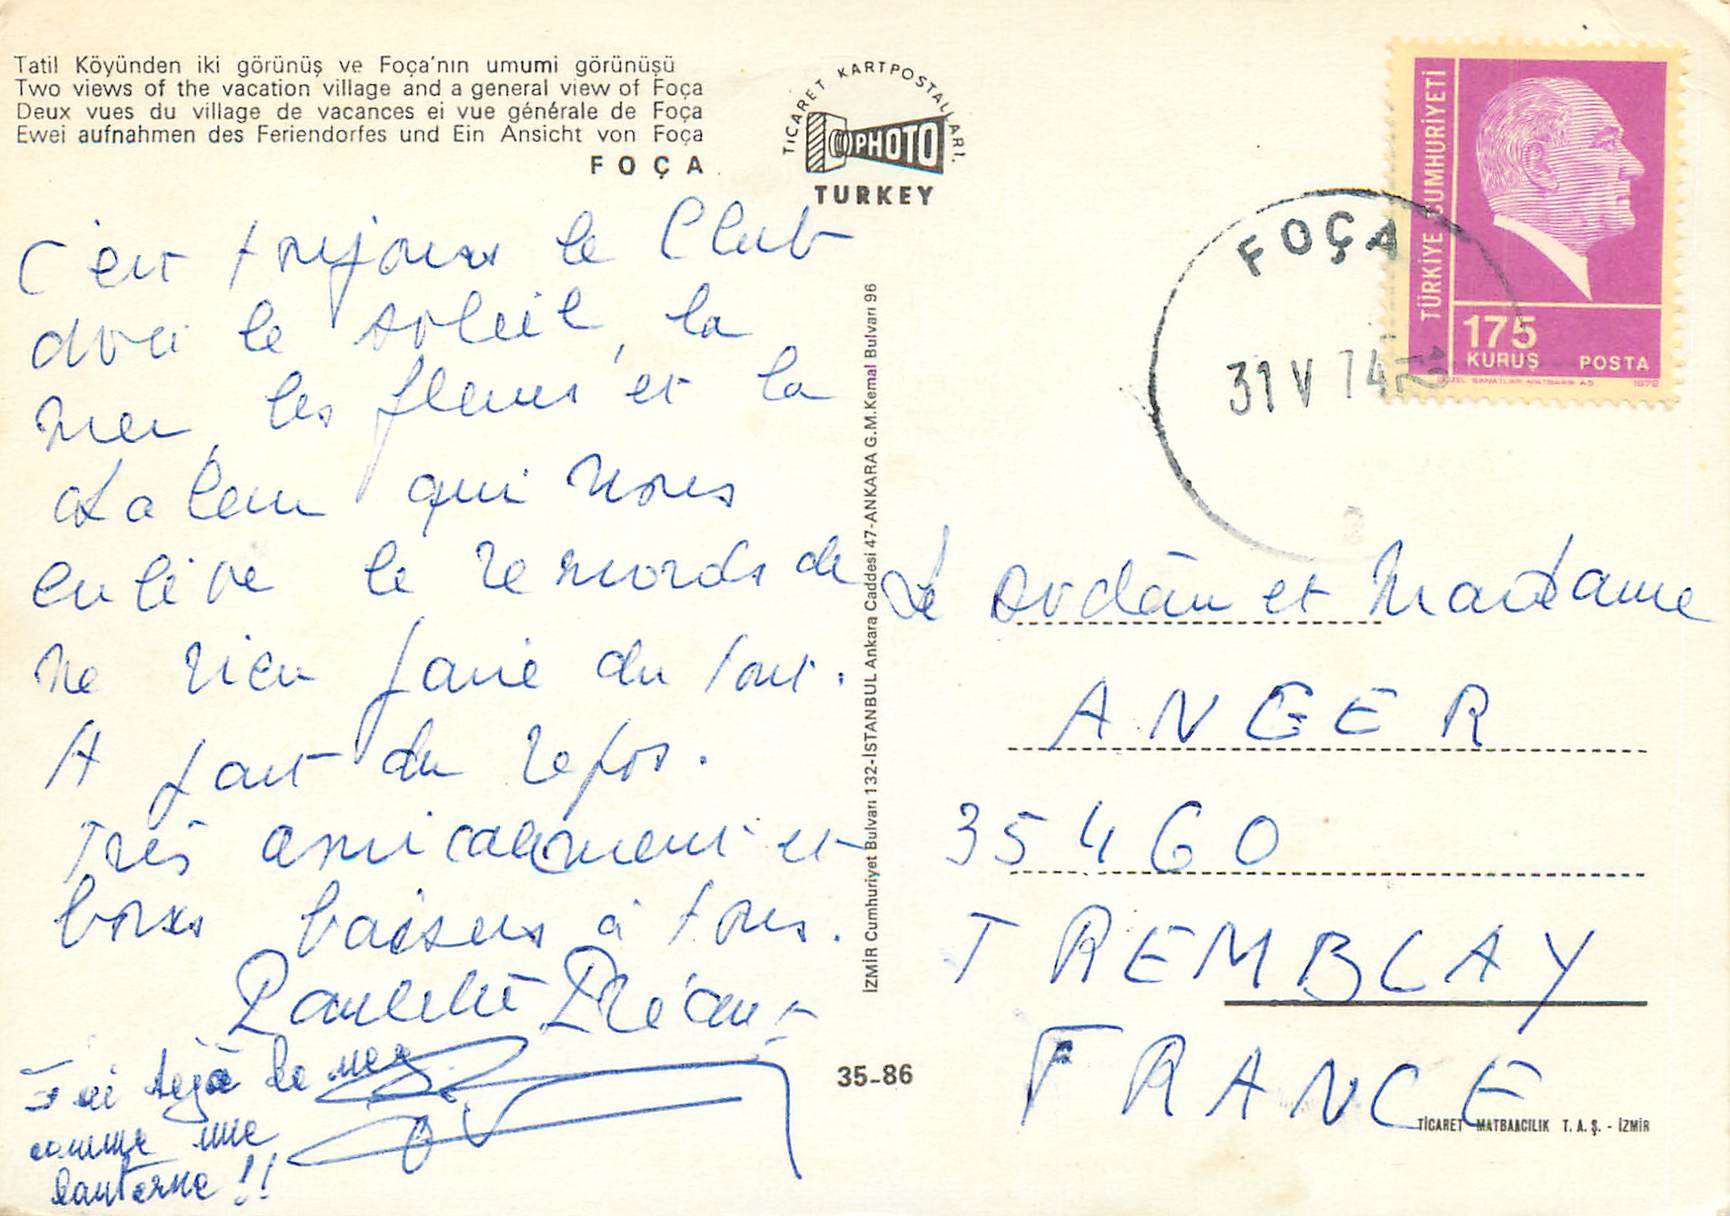 Tatil Köyünden iki görünüş ve Foça'nın umumi görünüşü
Two views of the vacation village and a general view of Foça
Deux vues du village de vacances ei vue générale de Foça
Ewei aufnahmen des Feriendorfes und Ein Ansicht von Foça
FOÇA
TİCARET KARTPOSTALLARI.
PHOTO
TURKEY
C'est toujours le Club
avec le soleil, la
mer, les fleurs et la
chaleur qui nous
enlève le remords de
ne rien faire du tout.
A fait du repos.
Très amicalement et
bons baisers à tous.
Paulette
J'ai déjà le nez
comme une
lanterne !!
İZMİR Cumhuriyet Bulvarı 132-İSTANBUL Ankara Caddesi 47-ANKARA G.M.Kemal Bulvarı 96
35-86
TÜRKİYE CUMHURİYETİ
175
KURUŞ POSTA
GÜZEL SANATLAR MATBAASI AŞ 1972
FOÇA
31 V 74
et Madame
ANGER
35460
TREMBLAY
FRANCE
TİCARET MATBAACILIK T. A. Ş. - İZMİR